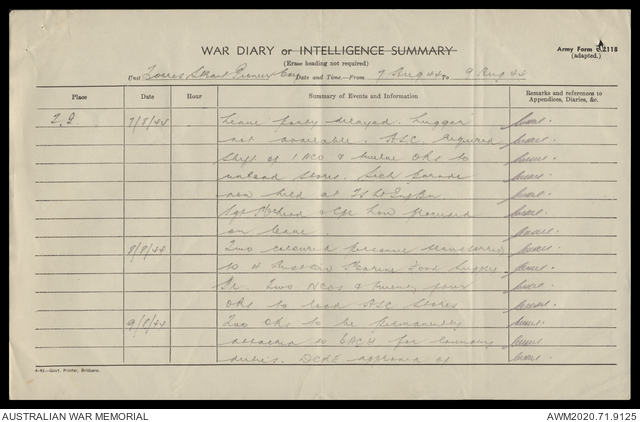 WAR DIARY or INTELLIGENCE SUMMARY
Army Form C.2118
(adapted.)
(Erase heading not required)
Unit Torres Strait Pioneer Coy Date and Time—From 7 Aug 44 To 9 Aug 44
Place Date Hour Summary of Events and Information Remarks and references to Appendices, Diaries, &c.
T.I. 7/8/44 Leave party delayed. Lugger
not available. ASC required
shift of 1 NCO & twelve ORs to
unload stores. Sick parade
now held at TS Lt Inf Bn.
Sgt & Cpl proceeded
on leave.
8/8/44 Two coloured personnel transferred
to 4 Aust Marine Food Supply
Two NCOs & twenty four
ORs to load ASC Stores
9/8/44 Two ORs to be permanently
attached to for
duties. approval of
4-43.—Govt. Printer, Brisbane.
AUSTRALIAN WAR MEMORIAL
AWM2020.71.9125